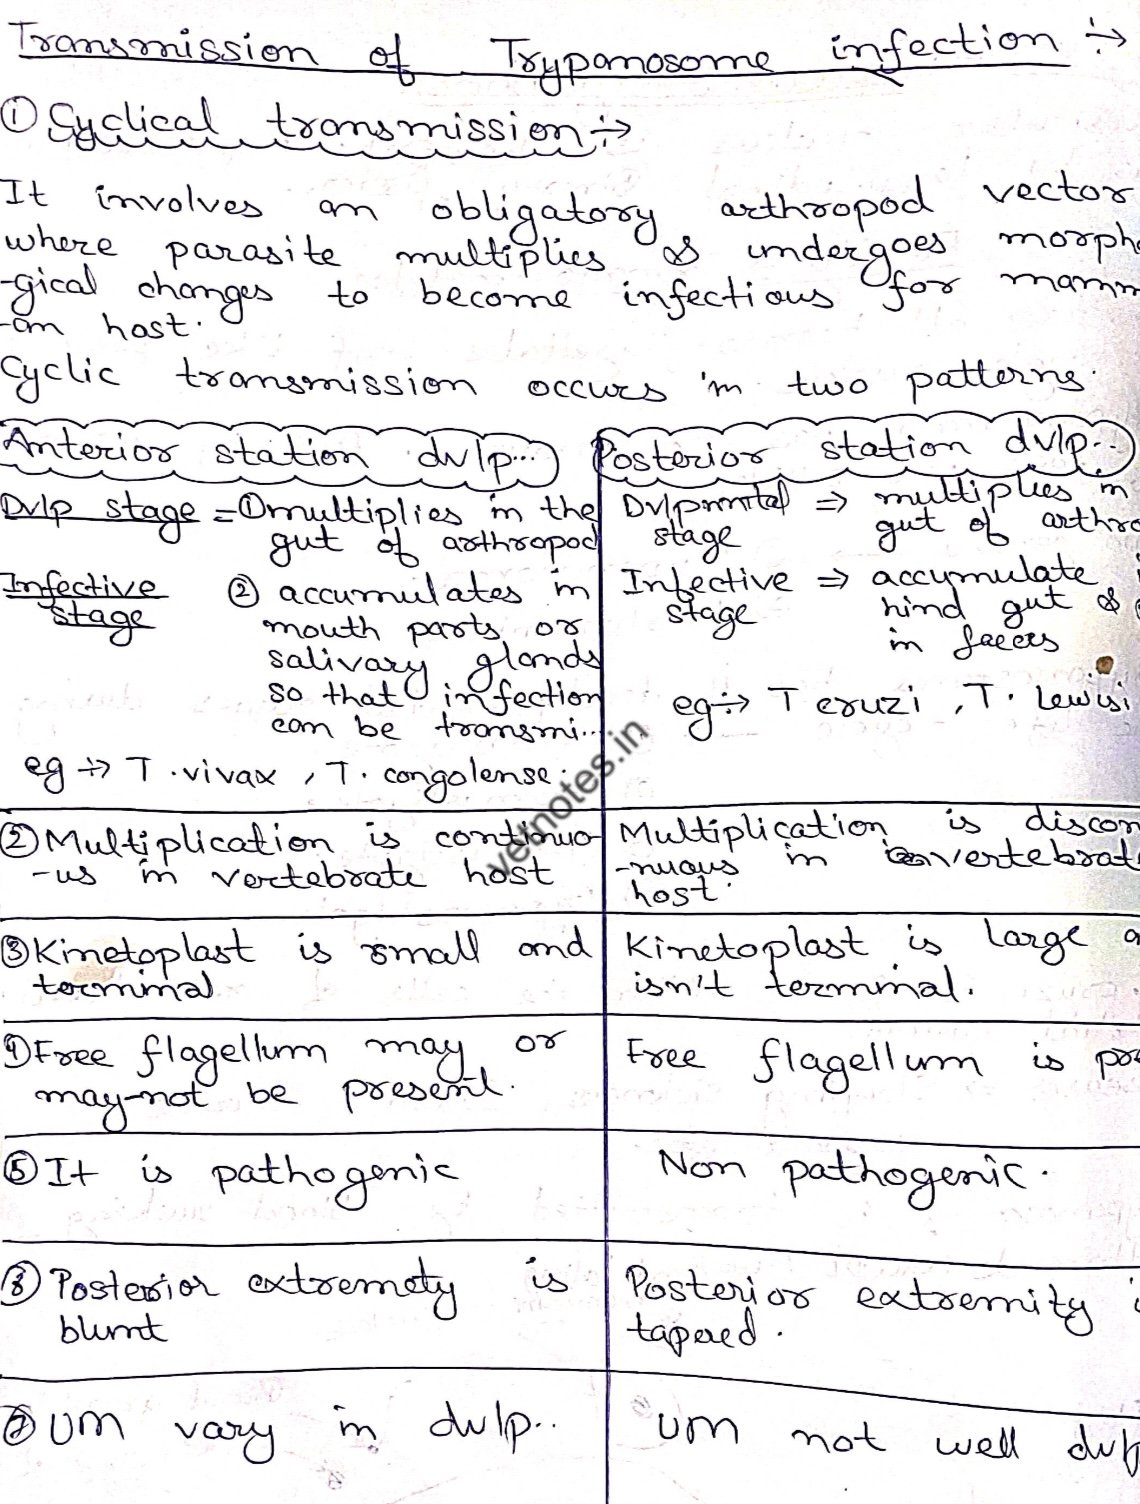 Transmission of Trypanosome infection ÷>
① Cyclical transmission ÷>
It involves an obligatory arthropod vector
where parasite multiplies & undergoes morph
-gical changes to become infectious for mamm
-an host.
Cyclic transmission occurs in two patterns.
Anterior station dvlp...
Dvlp stage = ① multiplies in the
gut of arthropod
Infective ② accumulates in
stage mouth parts or
salivary glands
so that infection
can be transmi..
eg ÷> T. vivax, T. congolense.
Posterior station dvlp...
Dvlpmntal => multiplies in
stage gut of arthro
Infective => accumulate
stage hind gut &
in faeces
eg ÷> T cruzi, T. Lewisi
vetnotes.in
② Multiplication is continuo
-us in vertebrate host
Multiplication is discon
-nuous in vertebrat
host.
③ Kinetoplast is small and
terminal
Kinetoplast is large a
isn't terminal.
Free flagellum may or
may-not be present.
Free flagellum is pre
⑤ It is pathogenic
Non pathogenic.
Posterior extremety is
blunt
Posterior extremity i
tapered.
⑦ UM vary in dvlp..
UM not well dvlp